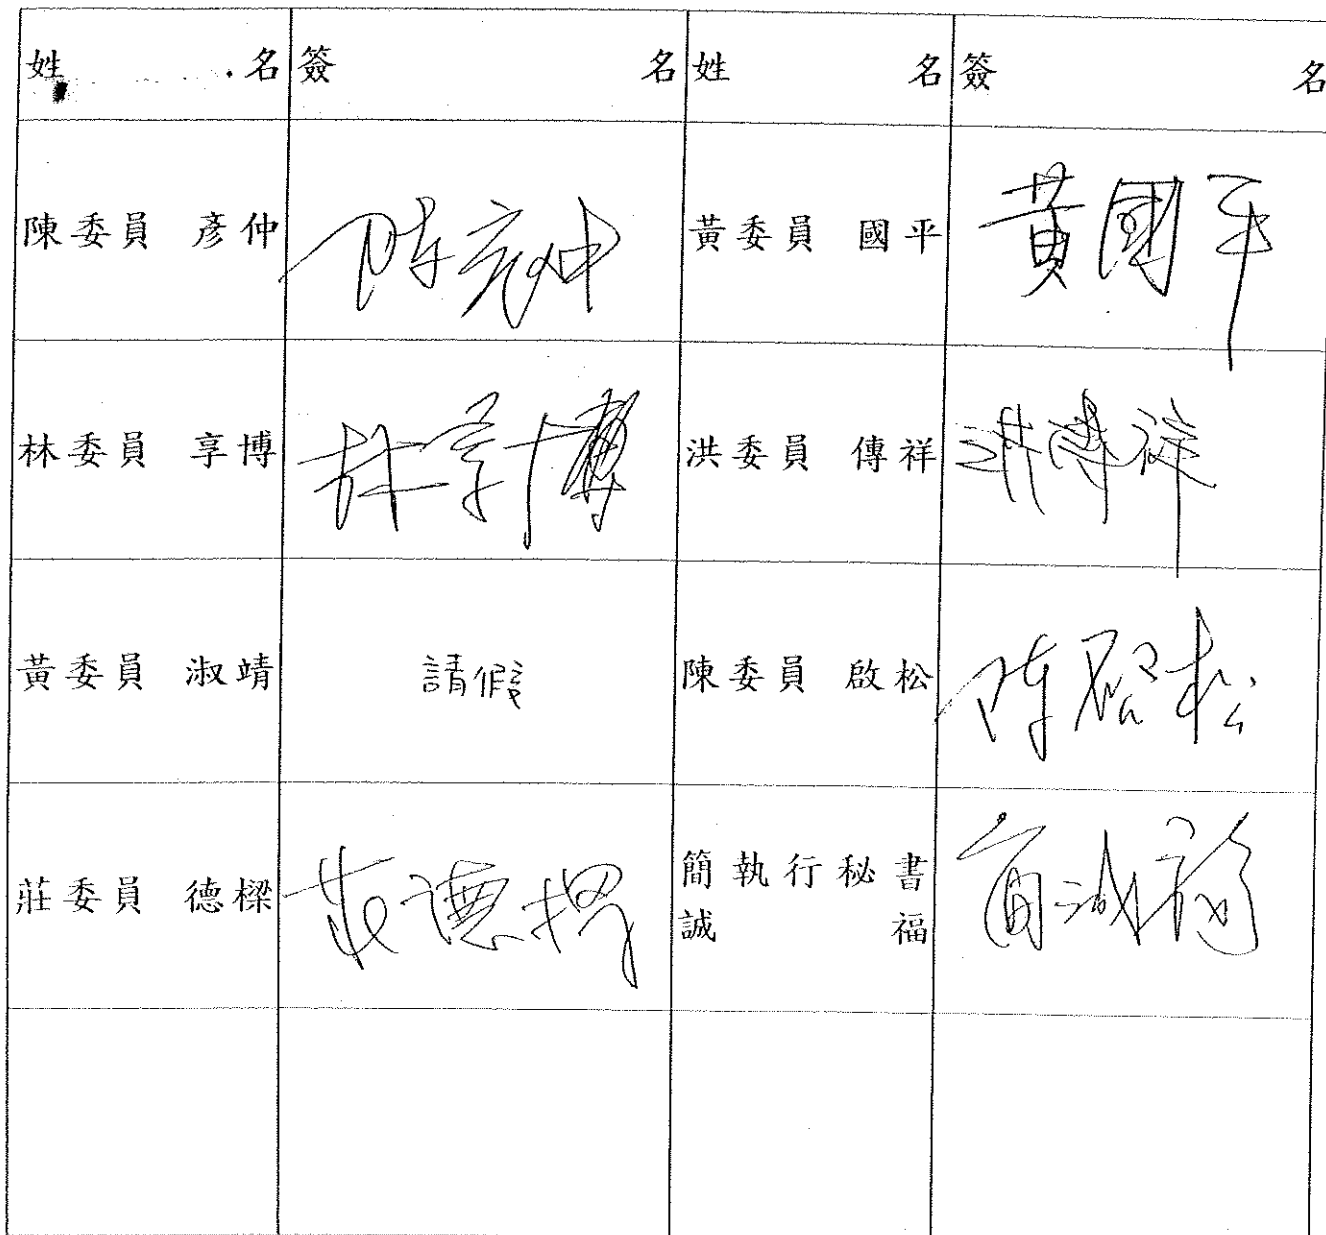 姓 名 簽 名 姓 名 簽 名
陳委員 彥仲 陳彥仲 黃委員 國平 黃國平
林委員 享博 林享博 洪委員 傳祥 洪傳祥
黃委員 淑靖 請假 陳委員 啟松 陳啟松
莊委員 德樑 莊德樑 簡執行秘書
誠 福 簡誠福